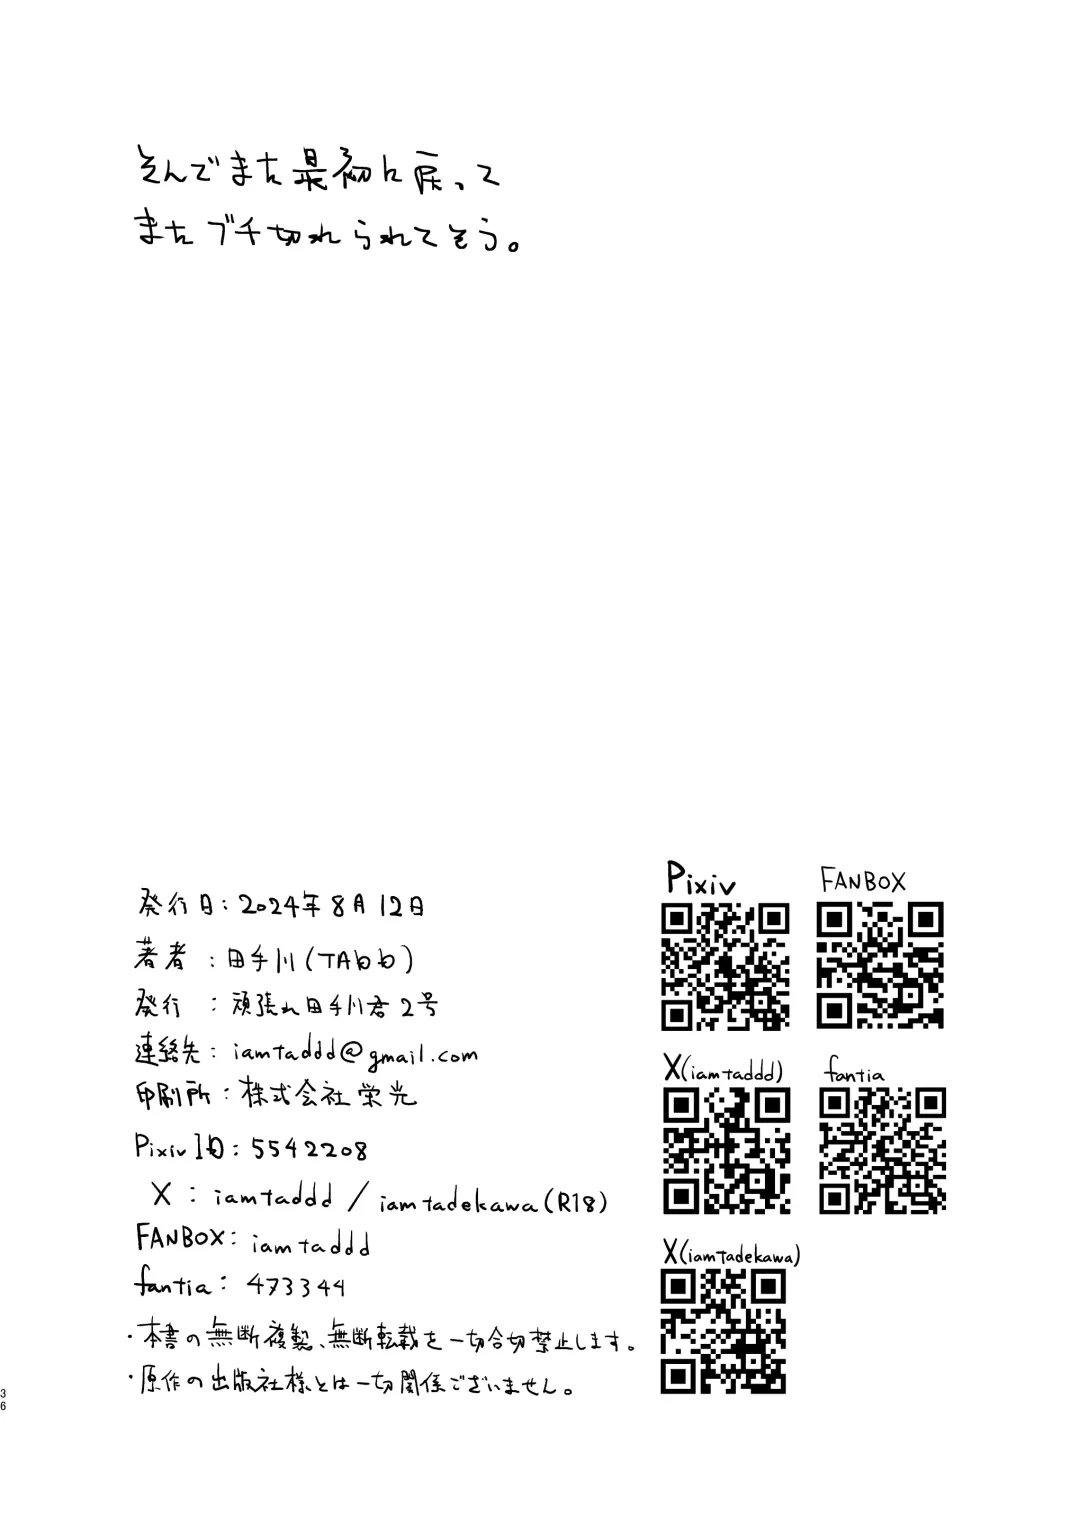 そんでまた最初に戻って
またブチ切れられてそう。
発行日：2024年8月12日
著者：田手川(TAbb)
発行：頑張れ田手川君2号
連絡先：iamtaddd@gmail.com
印刷所：株式会社栄光
Pixiv ID：5542208
X：iamtaddd / iamtadekawa(R18)
FANBOX：iamtaddd
fantia：473344
・本書の無断複製、無断転載を一切合切禁止します。
・原作の出版社様とは一切関係ございません。
Pixiv
FANBOX
X(iamtaddd)
fantia
X(iamtadekawa)
36